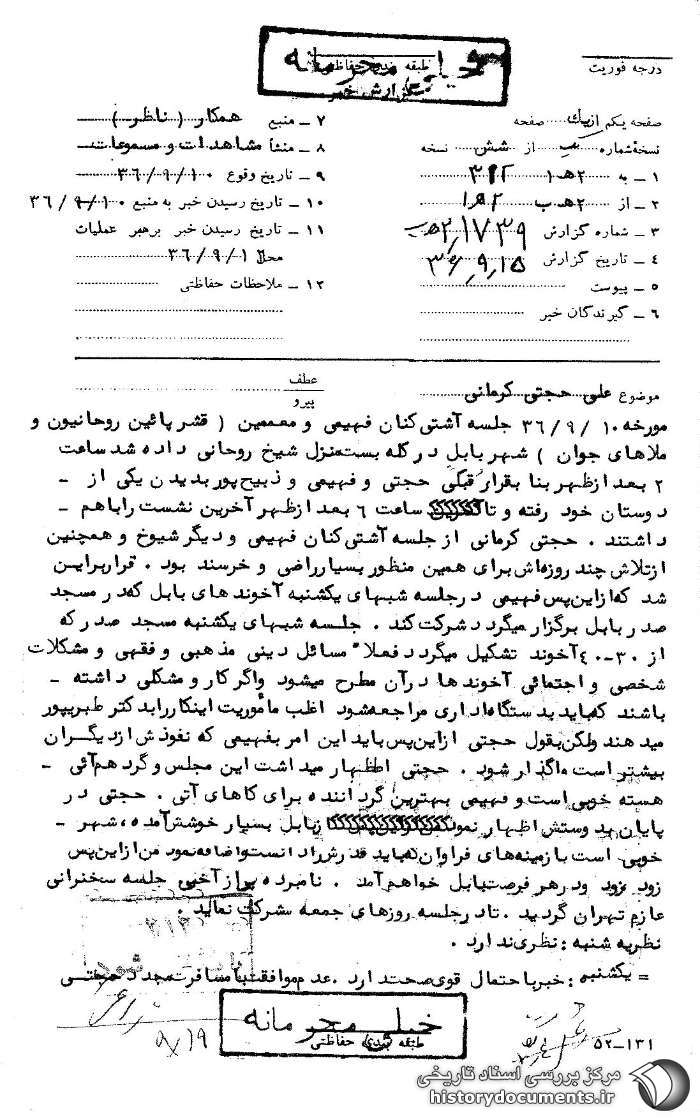 خیلی محرمانه
طبقه بندی حفاظتی
گزارش خبر
درجه فوریت
صفحه یکم از یک صفحه
نسخه شماره از شش نسخه
۱ - به ۲هـ۱ ۳۱۲
۲ - از ۲هـ ب
۳ - شماره گزارش
۴ - تاریخ گزارش ۳۶٫۹٫۱۵
۵ - پیوست
۶ - گیرندگان خبر
۷ - منبع همکار ( ناظر )
۸ - منشأ مشاهدات و مسموعات
۹ - تاریخ وقوع ۳۶/۹/۱۰
۱۰ - تاریخ رسیدن خبر به منبع ۳۶/۹/۱۰
۱۱ - تاریخ رسیدن خبر برهبر عملیات
محل ۳۶/۹/۱۲
۱۲ - ملاحظات حفاظتی
موضوع علی حجتی کرمانی
عطف
پیرو
مورخه ۳۶/۹/۱۰ جلسه آشتی کنان فهیمی و معممین ( قشر پائین روحانیون و
ملاهای جوان ) شهر بابل در کله بست منزل شیخ روحانی داده شد ساعت
۲ بعد از ظهر بنا بقرار قبلی حجتی و فهیمی و ذبیح پور بدیدن یکی از -
دوستان خود رفته و تا ساعت ۶ بعد از ظهر آخرین نشست را باهم -
داشتند . حجتی کرمانی از جلسه آشتی کنان فهیمی و دیگر شیوخ و همچنین
از تلاش چند روزه اش برای همین منظور بسیار راضی و خرسند بود . قرار براین
شد که از این پس فهیمی در جلسه شبهای یکشنبه آخوند های بابل که در مسجد
صدر بابل برگزار میگردد شرکت کند . جلسه شبهای یکشنبه مسجد صدر که
از ۳۰-۴۰ آخوند تشکیل میگردد فعلا" مسائل دینی مذهبی و فقهی و مشکلات
شخصی و اجتماعی آخوند ها در آن مطرح میشود واگر کار و مشکلی داشته -
باشند که باید بدستگاه اداری مراجعه شود اغلب مأموریت اینکار را بدکتر طبریپور
میدهند ولکن بقول حجتی از این پس باید این امر بفهیمی که نفوذش از دیگران
بیشتر است واگذار شود . حجتی اظهار میداشت این مجلس و گردهم آئی -
هسته خوبی است و فهیمی بهترین گرداننده برای کاهای آتی . حجتی در
پایان بدوستش اظهار نمود از بابل بسیار خوشش آمده ، شهر -
خوبی است با زمینه های فراوان که باید قدرش را دانست و اضافه نمود من از این پس
زود بزود و در هر فرصت ببابل خواهم آمد . نامبرده پس از آخرین جلسه سخنرانی
عازم تهران گردید . تا در جلسه روزهای جمعه شرکت نماید .
نظریه شنبه : نظری ندارد .
= یکشنبه : خبر با احتمال قوی صحت دارد . عدم موافقت با مسافرت مجدد حجتی
۹/۱۹
خیلی محرمانه
طبقه بندی حفاظتی
۵۲-۱۳۱
مرکز بررسی اسناد تاریخی
historydocuments.ir